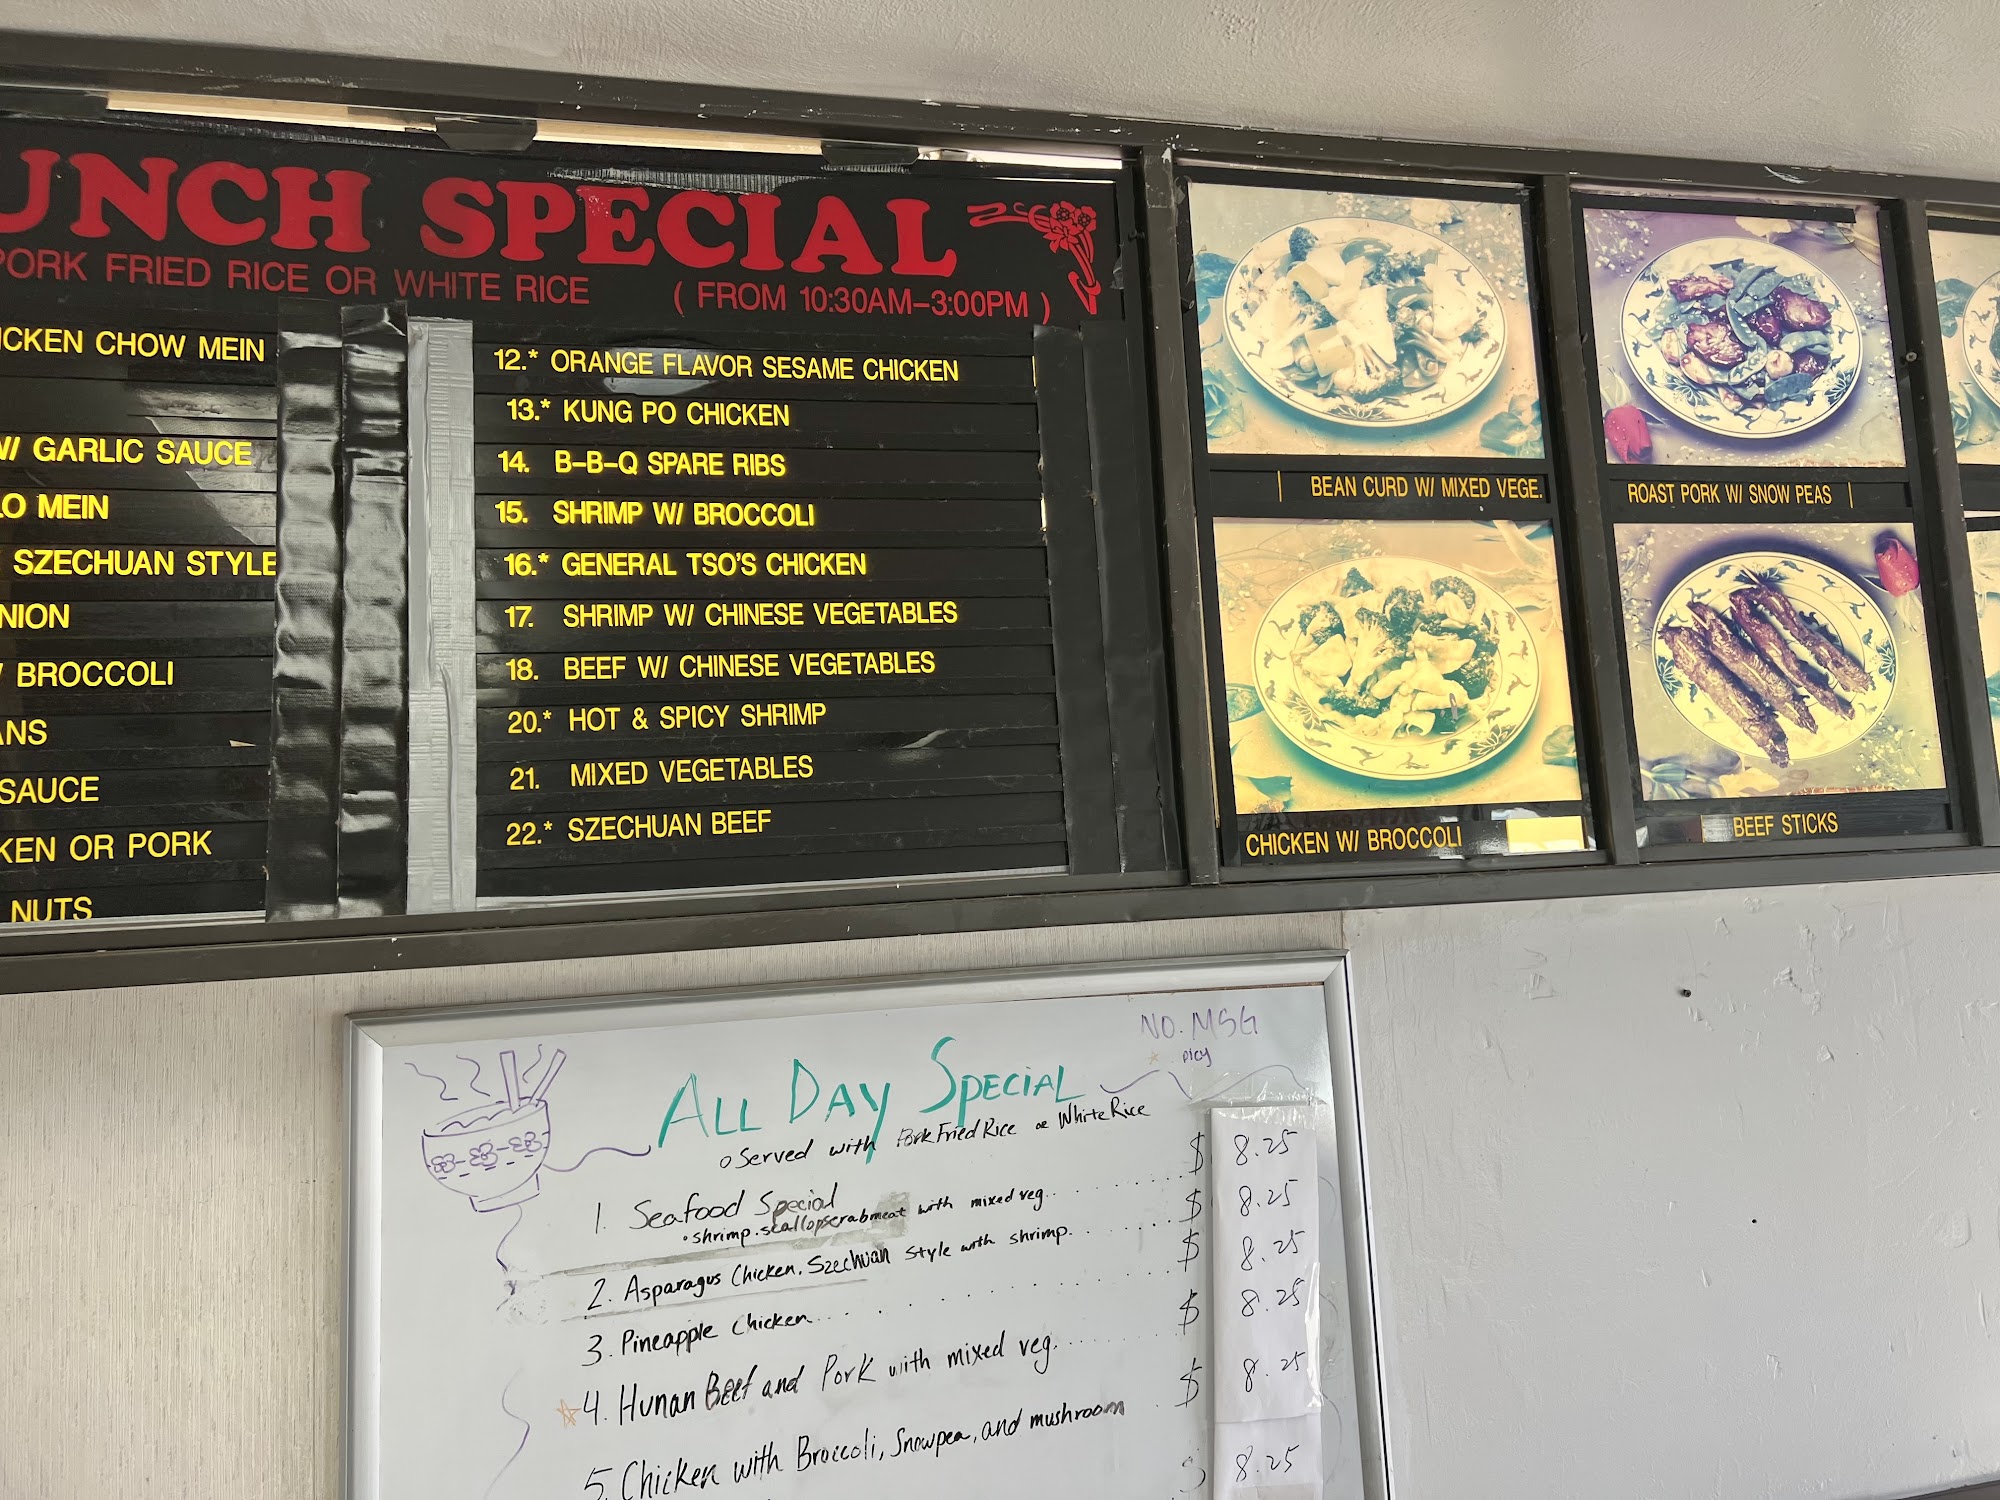 UNCH SPECIAL
PORK FRIED RICE OR WHITE RICE ( FROM 10:30AM-3:00PM )
ICKEN CHOW MEIN
W/ GARLIC SAUCE
LO MEIN
SZECHUAN STYLE
NION
/ BROCCOLI
ANS
SAUCE
KEN OR PORK
NUTS
12.* ORANGE FLAVOR SESAME CHICKEN
13.* KUNG PO CHICKEN
14. B-B-Q SPARE RIBS
15. SHRIMP W/ BROCCOLI
16.* GENERAL TSO'S CHICKEN
17. SHRIMP W/ CHINESE VEGETABLES
18. BEEF W/ CHINESE VEGETABLES
20.* HOT & SPICY SHRIMP
21. MIXED VEGETABLES
22.* SZECHUAN BEEF
BEAN CURD W/ MIXED VEGE.
ROAST PORK W/ SNOW PEAS
CHICKEN W/ BROCCOLI
BEEF STICKS
NO. MSG
picy
ALL DAY SPECIAL
Served with Pork Fried Rice or White Rice
1. Seafood Special $ 8.25
• shrimp. scallopscrabmeat with mixed veg.
2. Asparagus Chicken. Szechuan Style with shrimp. $ 8.25
3. Pineapple Chicken $ 8.25
4. Hunan Beef and Pork with mixed veg. $ 8.25
5. Chicken with Broccoli, Snowpea, and mushroom $ 8.25
$ 8.25